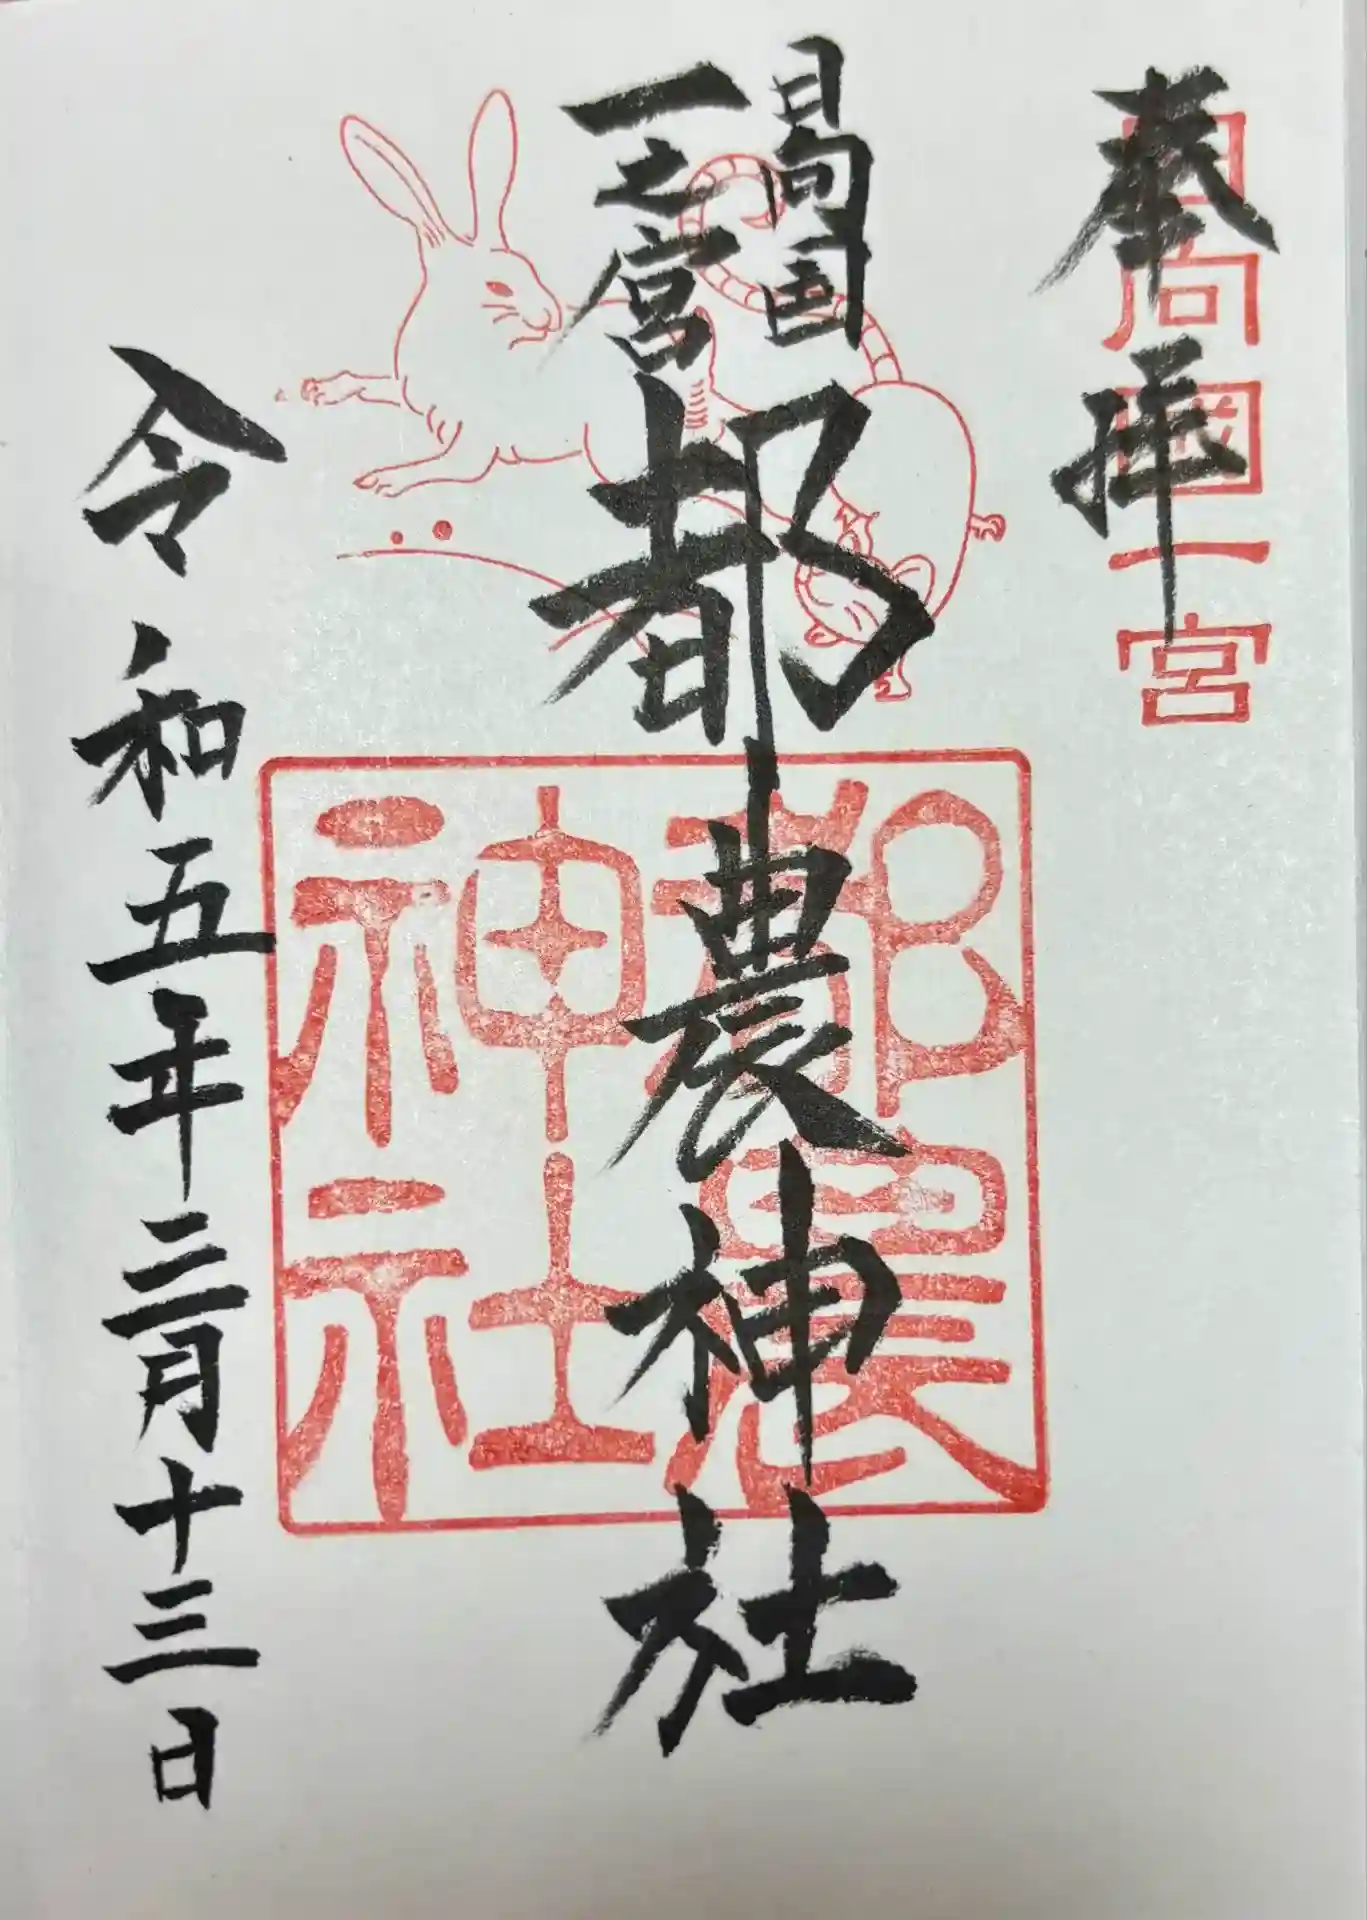 奉拝
日向國一宮
日向国
一之宮
都農神社
都農神社
令和五年三月十三日